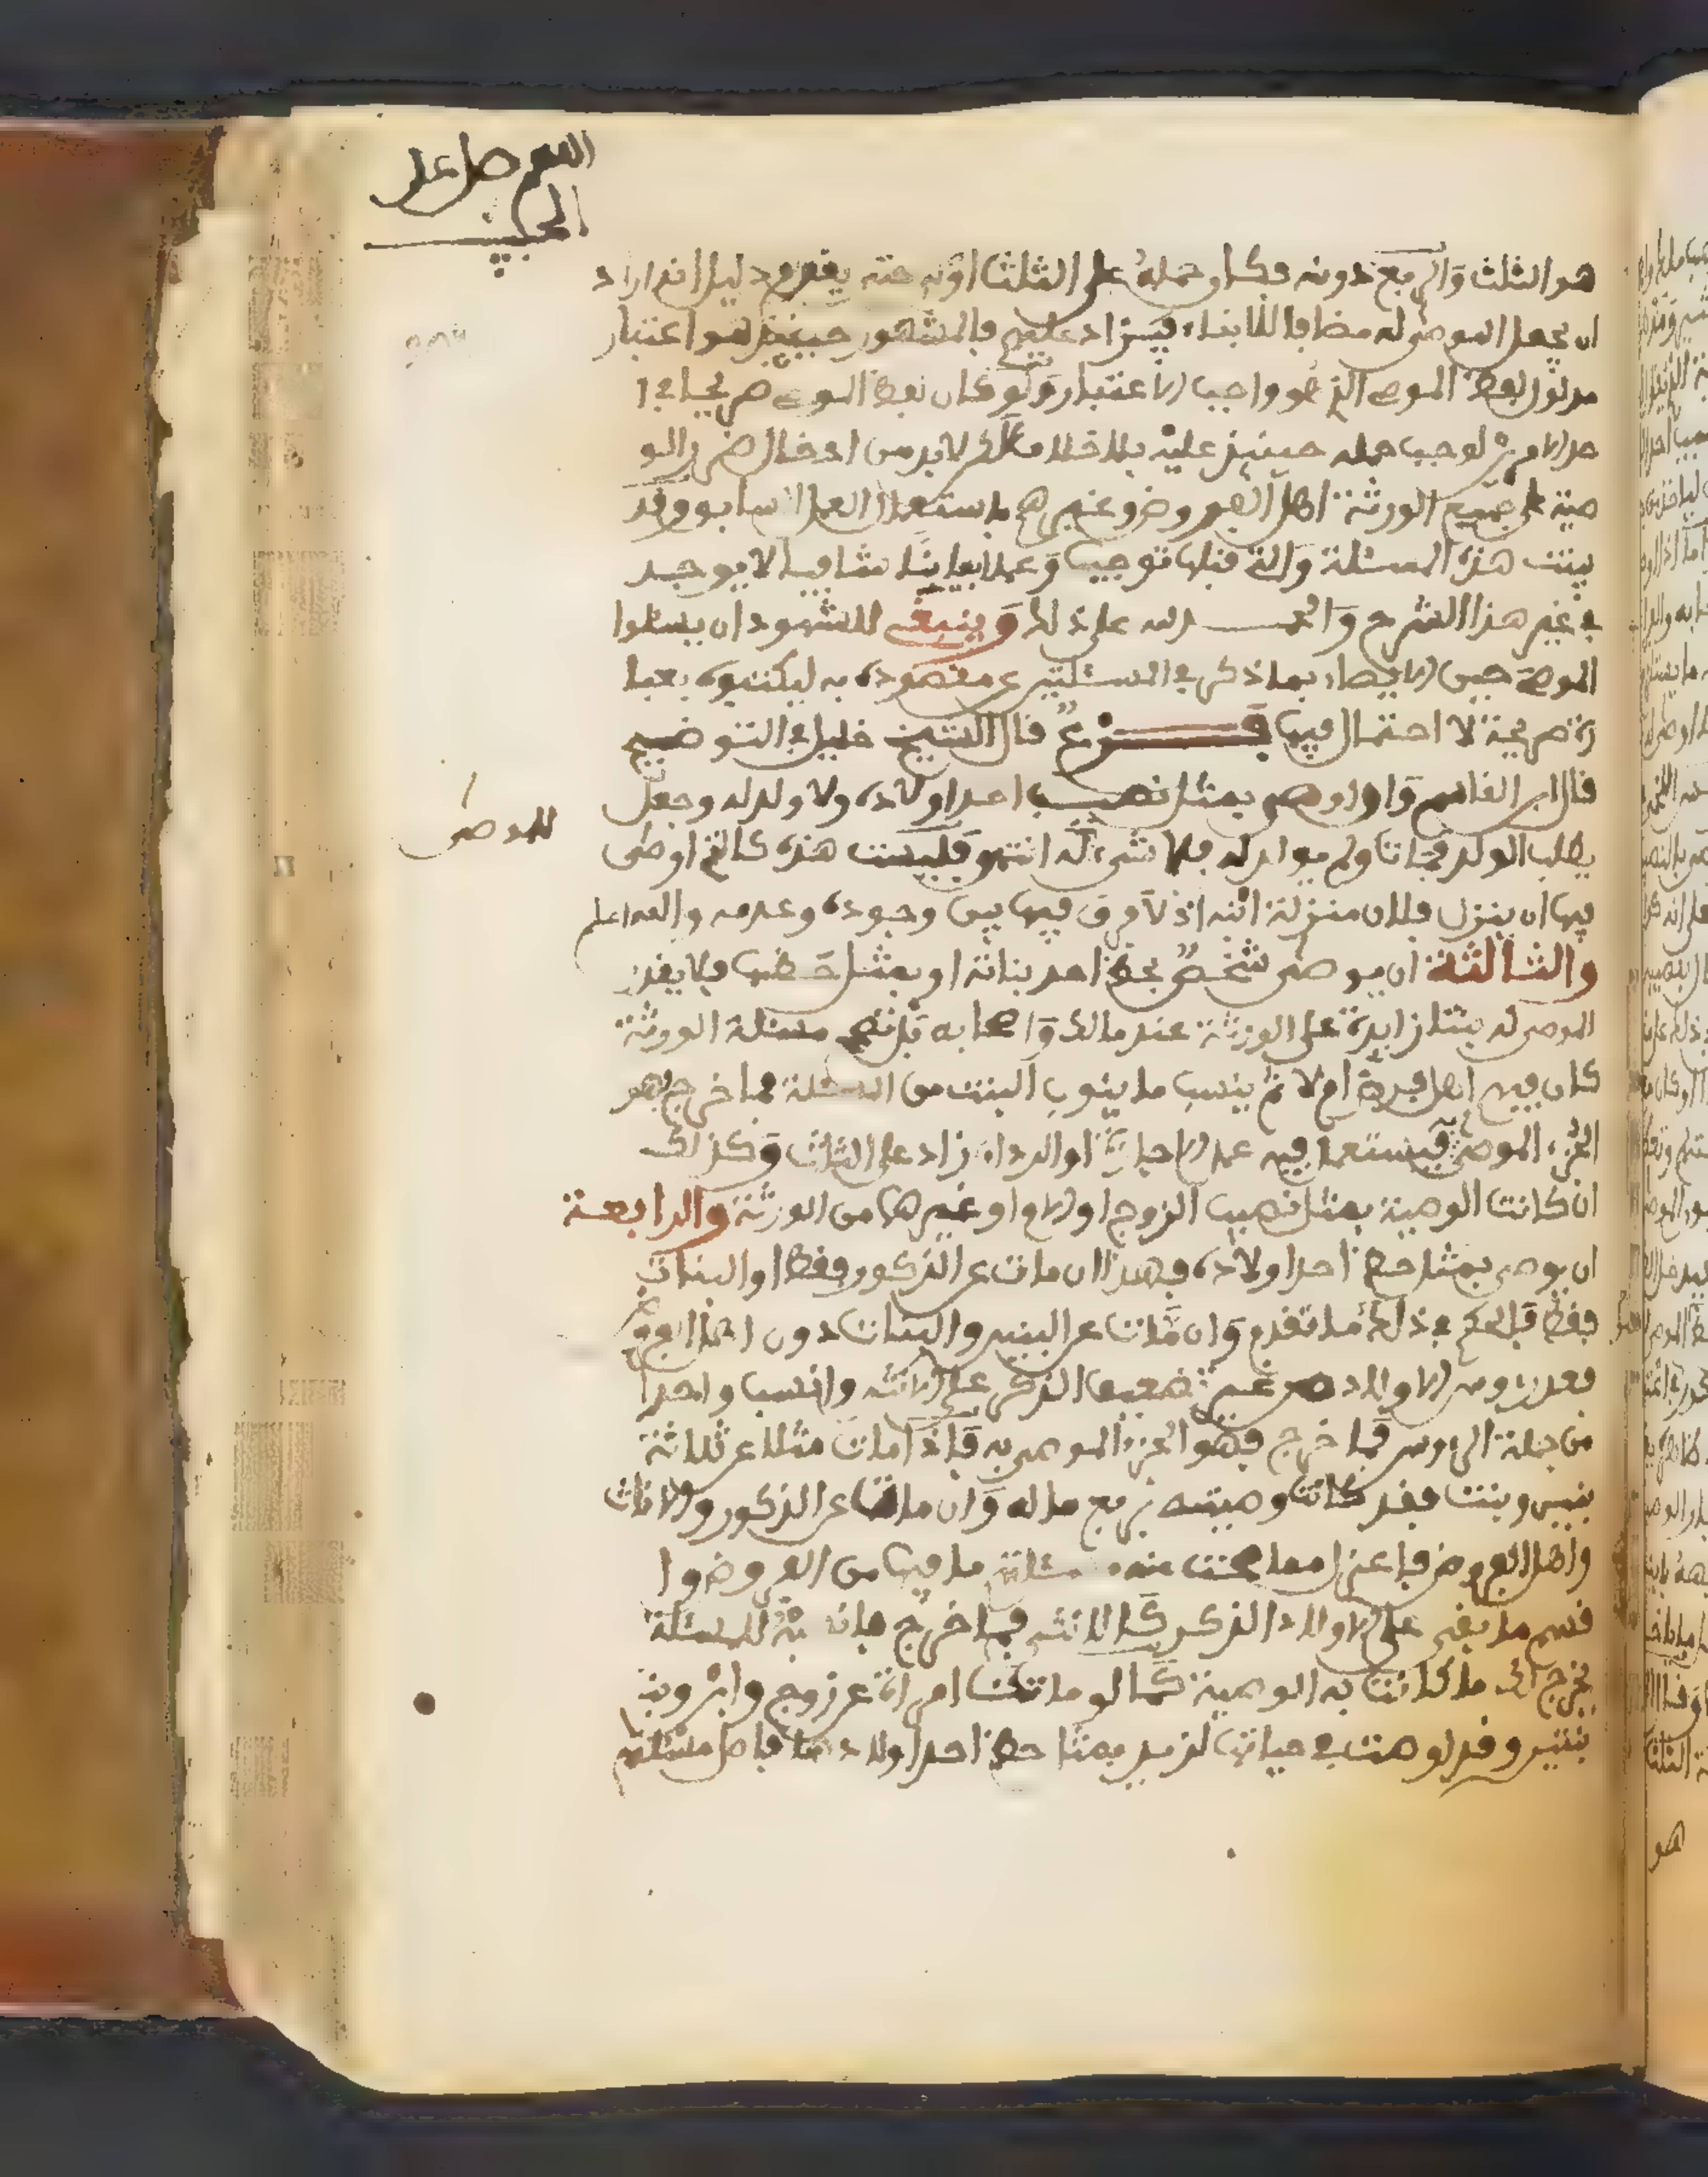 اللهم صل على
الحبيب
هو الثلث والربع دونه فكان حمله على الثلث اولى حتى يقوم دليل انه اراد
ان يجعل الموصى له مضافا للابناء فيزاد عليهم فالمشهور حينئذ هو اعتبار
مدلول لفظ الموصي الذي هو واجب الاعتبار ولو كان لفظ الموصي صريحا في ا
حد الامرين لوجب حمله حينئذ عليه بلا خلاف لانه لا بد من ادخال ضرر الو
صية على جميع الورثة اهل الفروض وغيرهم باستعمال العمل السابق وقد
بينت هذه المسئلة والتي قبلها توجيها وعملا بيانا شافيا لا يوجد
في غير هذا الشرح والحمد لله على ذلك وينبغي للشهود ان يسئلوا
الموصي حين الايصاء بما ذكر في المسئلتين عن مقصوده به ليكتبوه بعبا
رة صريحة لا احتمال فيها فرع قال الشيخ خليل في التوضيح
قال ابن القاسم واذا اوصى بمثل نصيب احد اولاده ولا ولد له وجعل
يطلب الولد فمات ولم يولد له فلا شيء له انتهى وليست هذه كالتي اوصى
للموصى
فيها ان ينزل فلان منزلة ابنه اذ لا فرق فيها بين وجوده وعدمه والله اعلم
والثالثة ان يوصى شخص بحظ احد بناته او بمثل حظها فلا يقدر
الموصى له بنتا زايدة على الورثة عند مالك واصحابه بل تصح مسئلة الورثة
كان فيهم اهل فرض ام لا ثم ينسب ما ينوب البنت من المسئلة فما خرج فهو
الجزء الموصى به فيستعمل فيه عمل الاجازة او الرد ان زاد على الثلث وكذلك
ان كانت الوصية بمثل نصيب الزوج او الام او غيرهما من الورثة والرابعة
ان يوصي بمثل حظ احد اولاده فهذا ان مات عن الذكور فقط او البنات
فقط فالحكم في ذلك ما تقدم وان مات عن البنين والبنات دون اهل الفروض
فعد رءوس الاولاد من غير تضعيف الذكر على الانثى وانسب واحدا
من جملة الرءوس فما خرج فهو الجزء الموصى به فاذا مات مثلا عن ثلاثة
بنين وبنت فقد كانت وصيته بربع ماله وان مات عن الذكور والاناث
واهل الفروض فاعزل مما صحت منه مسئلته ما فيها من الفروض وا
قسم ما بقي على الاولاد الذكر كالانثى فما خرج فانسبه للمسئلة
يخرج لك ما كانت به الوصية كما لو ماتت امراة عن زوج وابن و
بنتين وقد اوصت في حياتها لزيد بمثل حظ احد اولادها فاصل مسئلتها